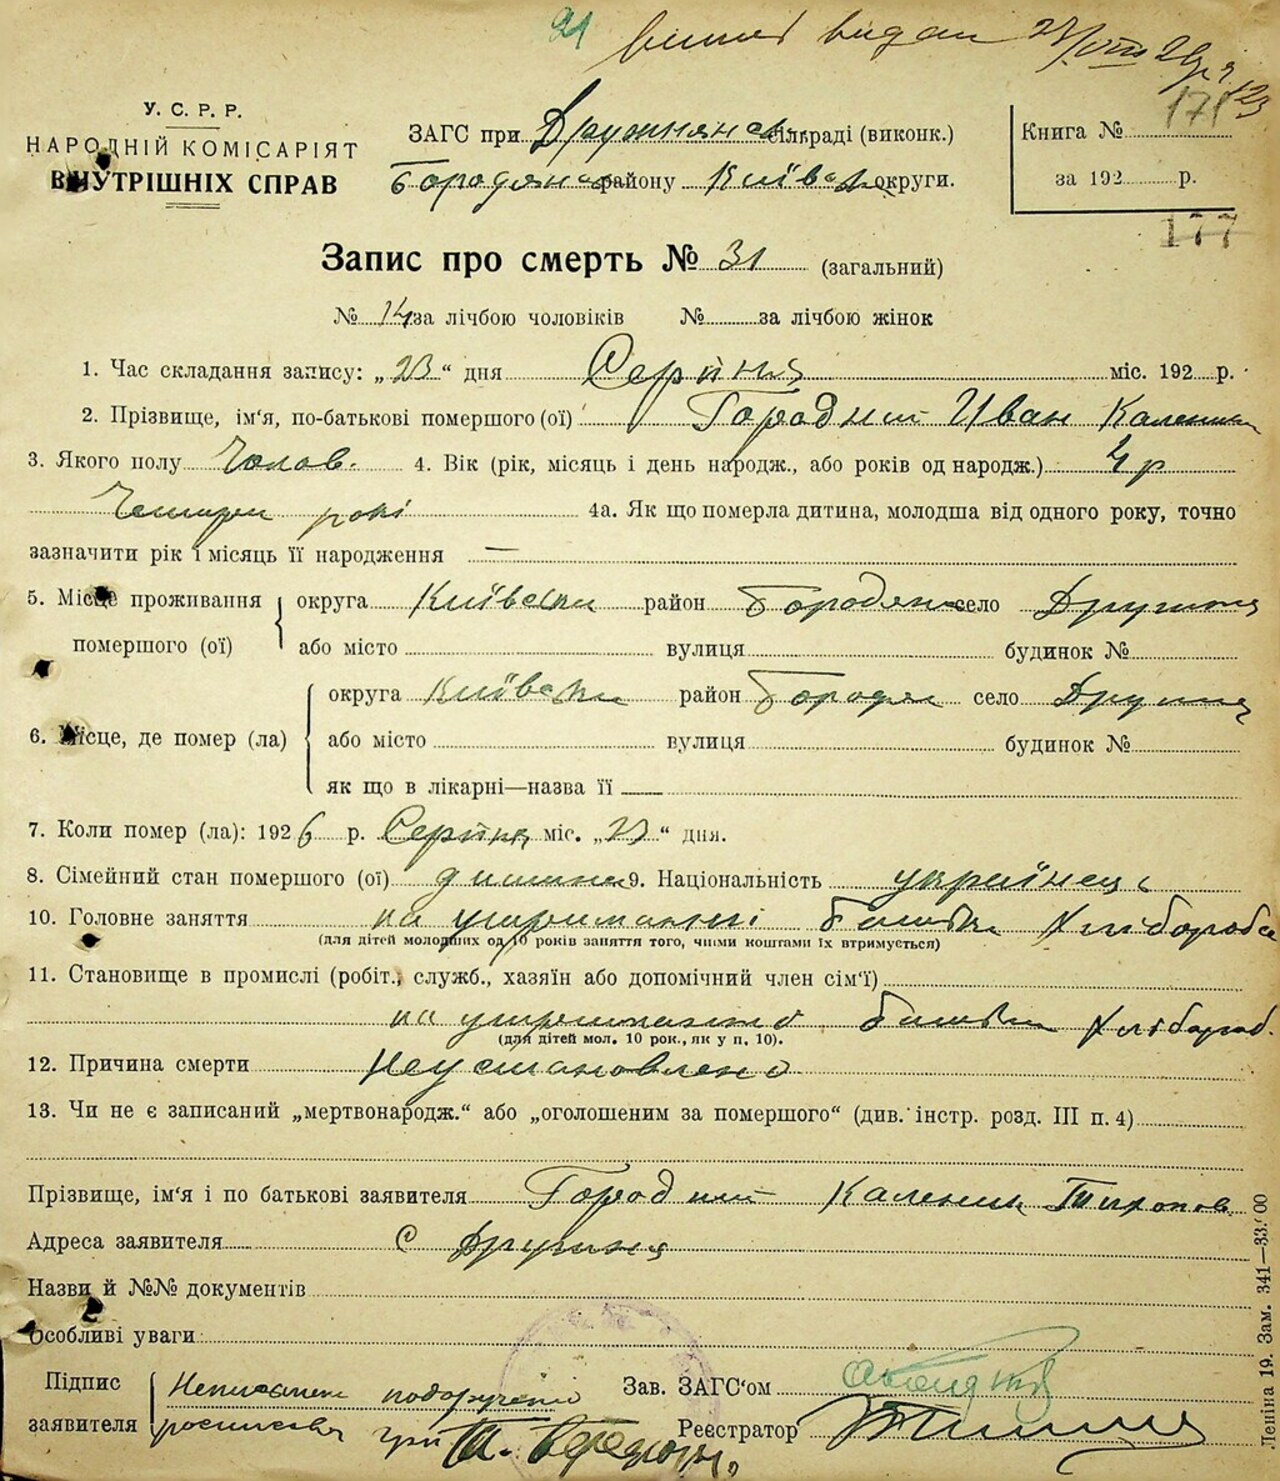 21 видан 23/VIII 26 р. 123
171
У. С. Р. Р.
НАРОДНІЙ КОМІСАРІЯТ
ВНУТРІШНІХ СПРАВ
ЗАГС при Дружнянск сільраді (виконк.)
Бородянськ району Київськ округи.
Книга №
за 192 р.
177
Запис про смерть № 31 (загальний)
№ 14 за лічбою чоловіків № за лічбою жінок
1. Час складання запису: „23“ дня Серпня міс. 192 р.
2. Прізвище, ім'я, по-батькові помершого (ої) Городний Иван Каленик
3. Якого полу Чолов. 4. Вік (рік, місяць і день народж., або років од народж.) 4 р
Чотири рокі 4а. Як що померла дитина, молодша від одного року, точно
зазначити рік і місяць її народження —
5. Місце проживання помершого (ої) округа Київськи район Бородянс село Дружня
або місто вулиця будинок №
6. Місце, де помер (ла) округа Київськи район Бородян село Дружня
або місто вулиця будинок №
як що в лікарні—назва її
7. Коли помер (ла): 1926 р. Серпня міс. „23“ дня.
8. Сімейний стан помершого (ої) дитина 9. Національність українець
10. Головне заняття на утриманні батьки хлібороба
(для дітей молодших од 10 років заняття того, чиїми коштами їх втримується)
11. Становище в промислі (робіт., служб., хазяїн або допомічний член сім'ї)
на батьки хлібороб.
(для дітей мол. 10 рок., як у п. 10).
12. Причина смерти Неустановлено
13. Чи не є записаний „мертвонародж.“ або „оголошеним за помершого“ (див. інстр. розд. III п. 4)
Прізвище, ім'я і по батькові заявителя Городний Каленик Тихонов
Адреса заявителя С Дружня
Назви й №№ документів
Особливі уваги
Підпис заявителя Неписьмен подорученю
росписався
Зав. ЗАГС'ом
Реєстратор
Леніна 19. Зам. 341—33.000